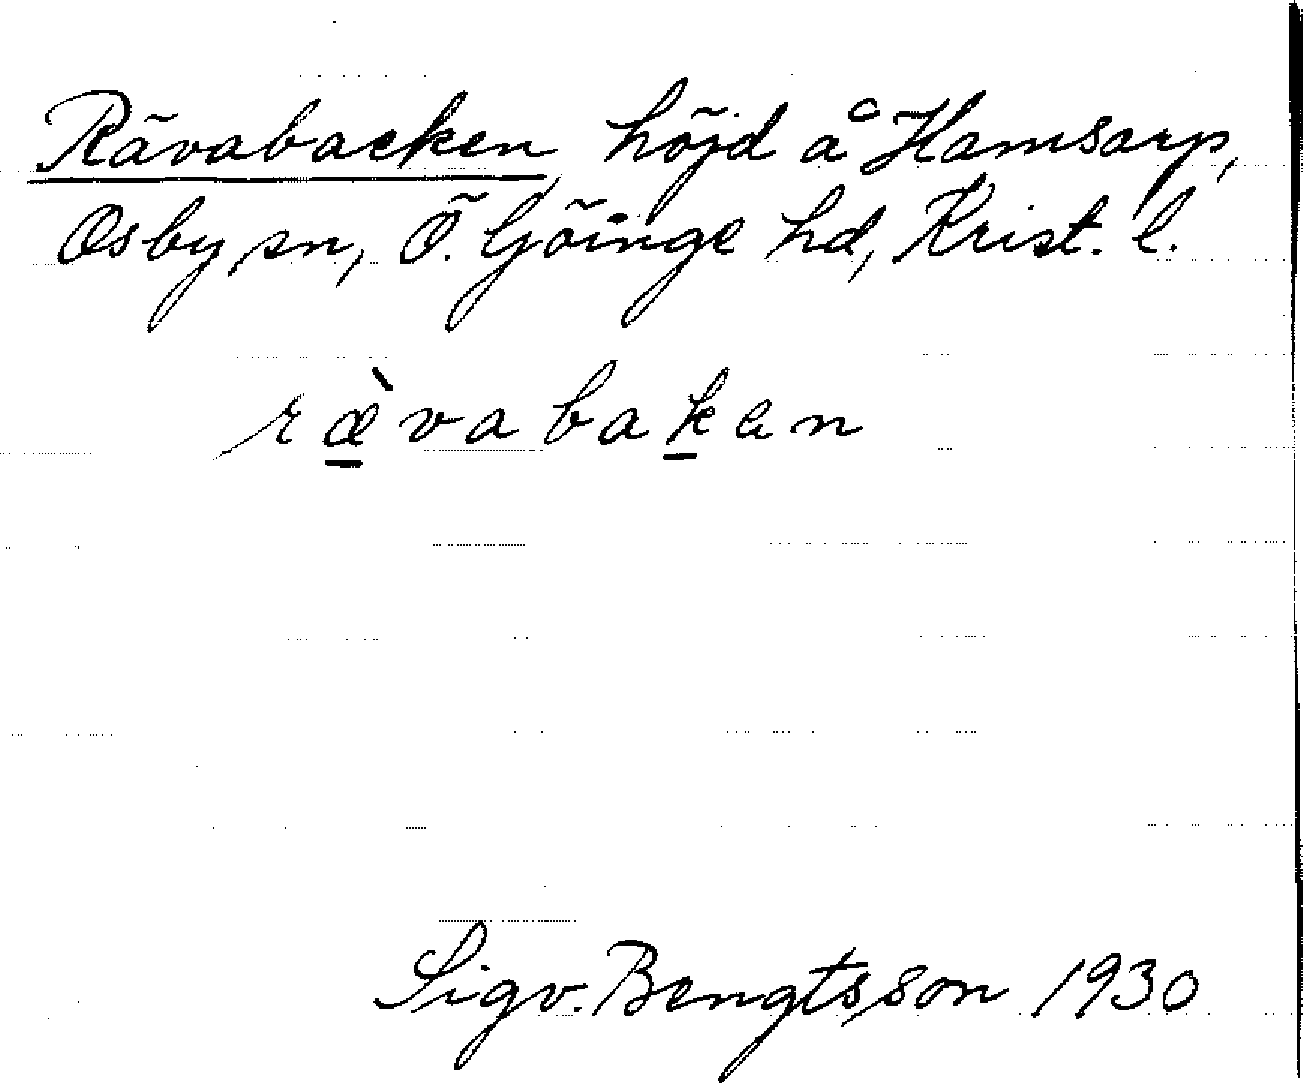 Rävabacken, höjd å Hamsarp,
Osby sn, Ö. Göinge hd, Krist. l.
ræ̀vabakan
Sigv. Bengtsson 1930